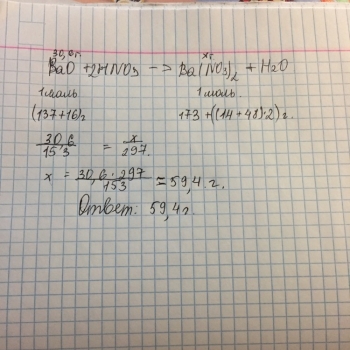 30,6 г. х г.
BaO + 2HNO3 —> Ba(NO3)2 + H2O
1 моль 1 моль.
(137+16)г 173 + ((14 + 48)·2) г.
30,6/153 = x/297.
x = 30,6 · 297/153 = 59,4 г.
Ответ: 59,4 г.